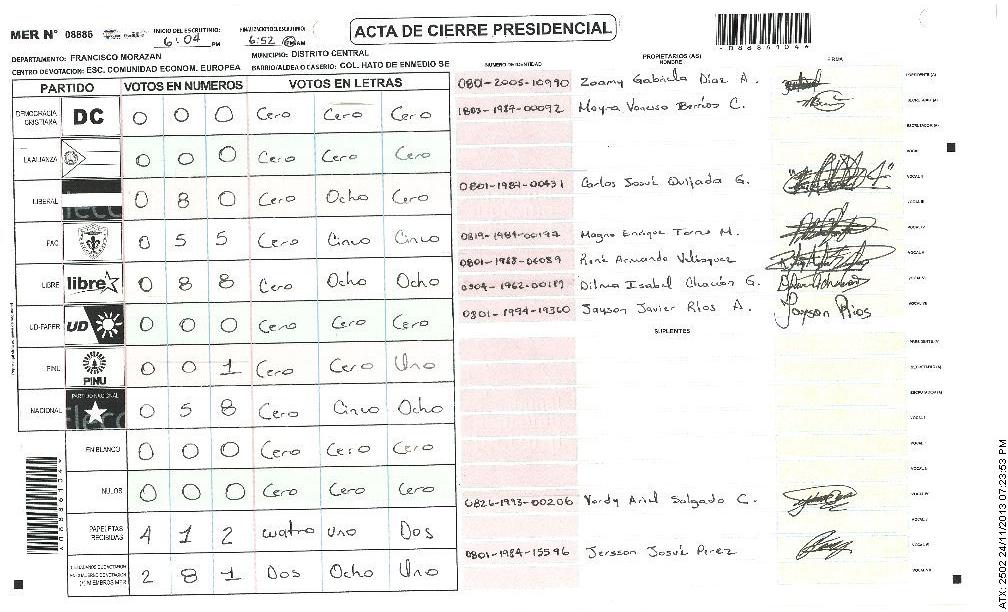 MER N° 08886
INICIO DEL ESCRUTINIO:
6:04 PM
FINALIZACIÓN DEL ESCRUTINIO:
6:52
ACTA DE CIERRE PRESIDENCIAL
DEPARTAMENTO: FRANCISCO MORAZAN
MUNICIPIO: DISTRITO CENTRAL
CENTRO DE VOTACION: ESC. COMUNIDAD ECONOM. EUROPEA
BARRIO/ALDEA O CASERIO: COL. HATO DE ENMEDIO SE
PARTIDO VOTOS EN NUMEROS VOTOS EN LETRAS
DEMOCRACIA CRISTIANA DC 0 0 0 Cero Cero Cero
LA ALIANZA 0 0 0 Cero Cero Cero
LIBERAL 0 8 0 Cero Ocho Cero
PAC 0 5 5 Cero Cinco Cinco
LIBRE libre 0 8 8 Cero Ocho Ocho
UD-FAPER UD 0 0 0 Cero Cero Cero
PINU PINU 0 0 1 Cero Cero Uno
NACIONAL PARTIDO NACIONAL 0 5 8 Cero Cinco Ocho
EN BLANCO 0 0 0 Cero Cero Cero
NULOS 0 0 0 Cero Cero Cero
PAPELETAS RECIBIDAS 4 1 2 cuatro uno Dos
2 8 1 Dos Ocho Uno
NUMERO DE IDENTIDAD
PROPIETARIOS (AS)
NOMBRE
FIRMA
0801-2005-10990 Zoamy Gabriela Díaz A.
1803-1984-00092 Mayra Vanessa Berríos C.
0801-1984-00431 Carlos Josué Quijada G.
0819-1984-00197 Magno Enrique Torres M.
0801-1968-06089 René Armando Velásquez
0904-1962-00189 Dilma Isabel Chacón G.
0801-1994-19360 Jayson Javier Ríos A. Jayson Rios
SUPLENTES
0826-1993-00206 Yordy Ariel Salgado C.
0801-1984-15596 Jersson Josué Perez
ATX: 2502 24/11/2013 07:23:53 PM